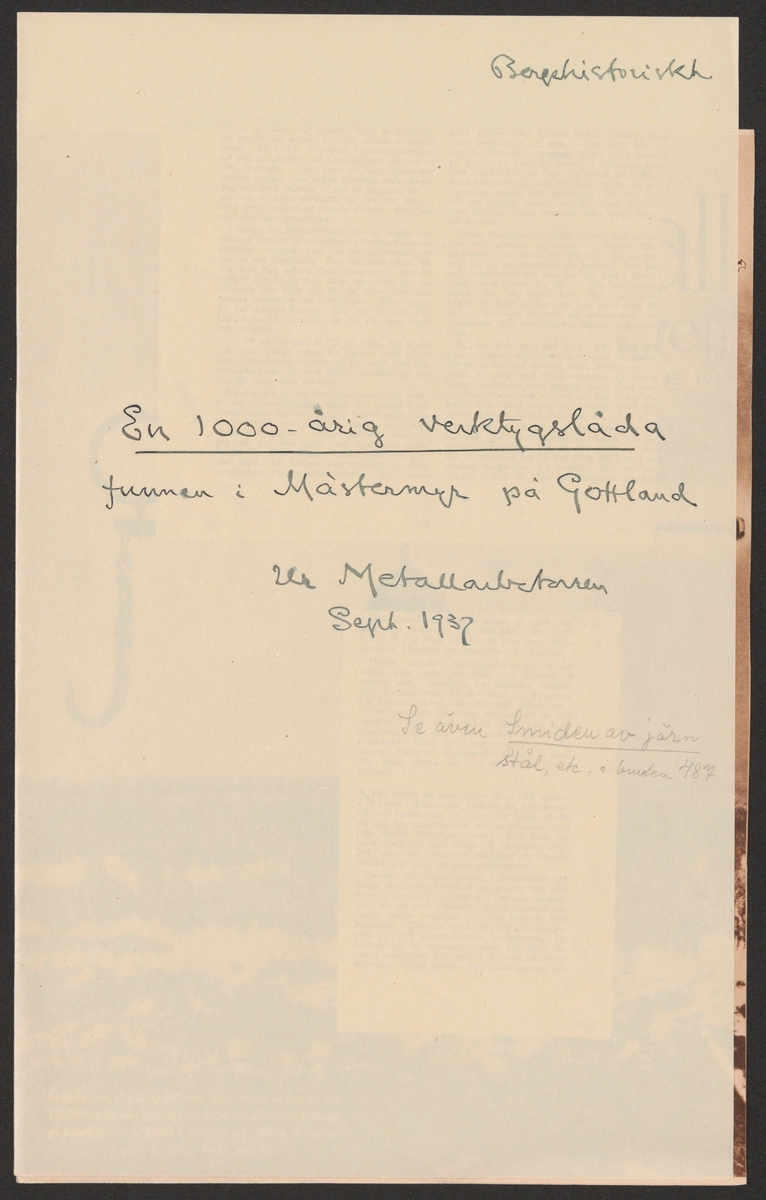 Bergshistoriskt
En 1000-årig verktygslåda
funnen i Mästermyr på Gottland
Ur Metallarbetaren
Sept. 1937
Se även Smiden av järn
stål, etc, i bunten 487